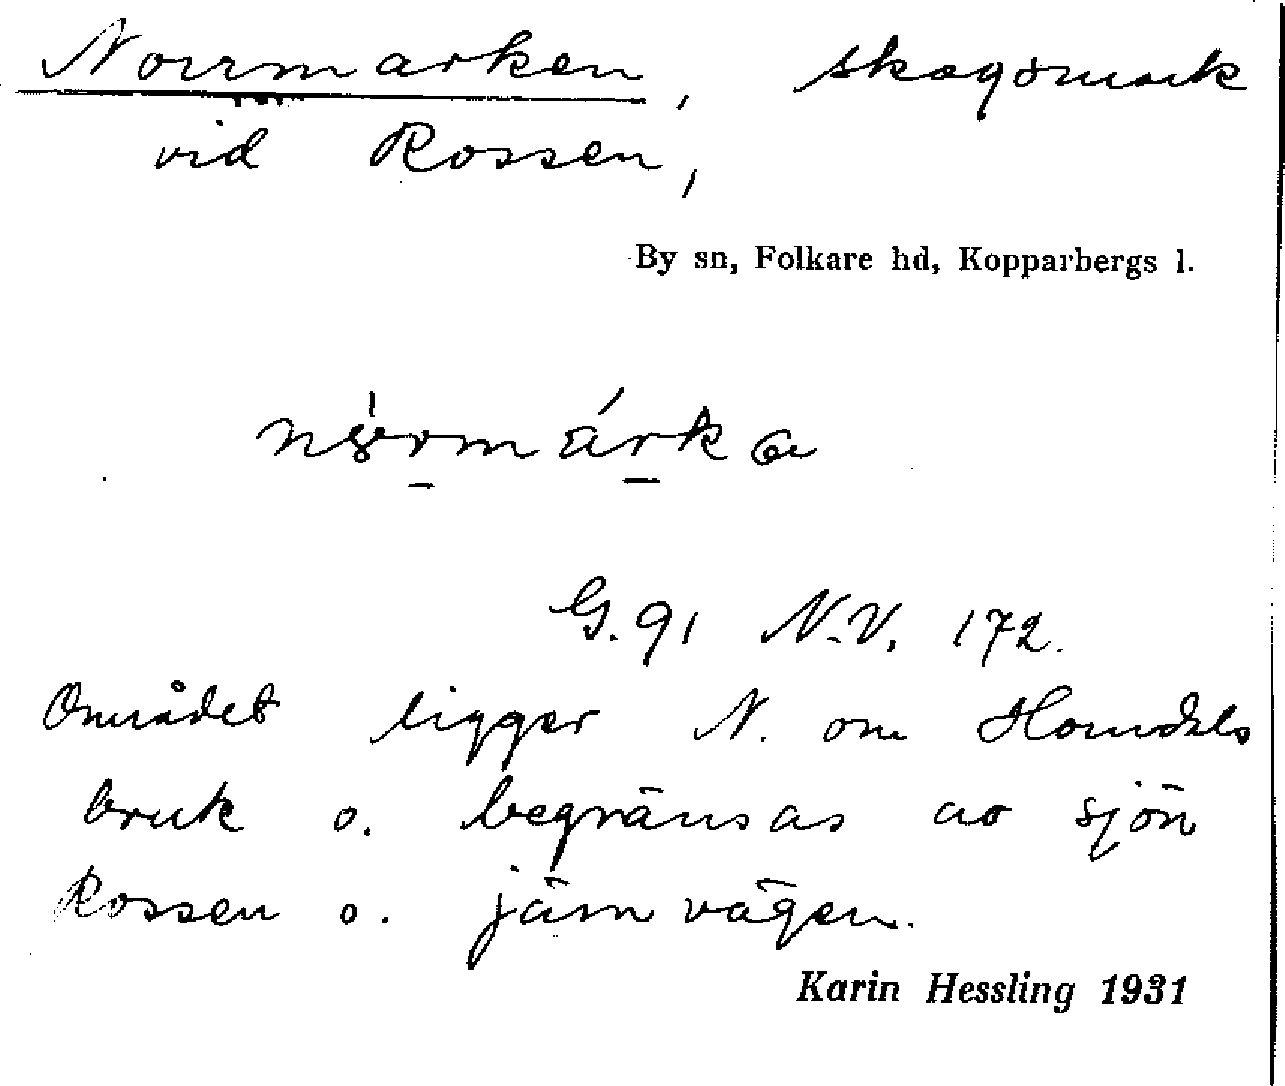 Norrmarken, skogsmark
vid Rossen,
By sn, Folkare hd, Kopparbergs l.
G. 91 N.V. 172.
Området ligger N. om Horndals
bruk o. begränsas av sjön
Rossen o. järnvägen.
Karin Hessling 1931